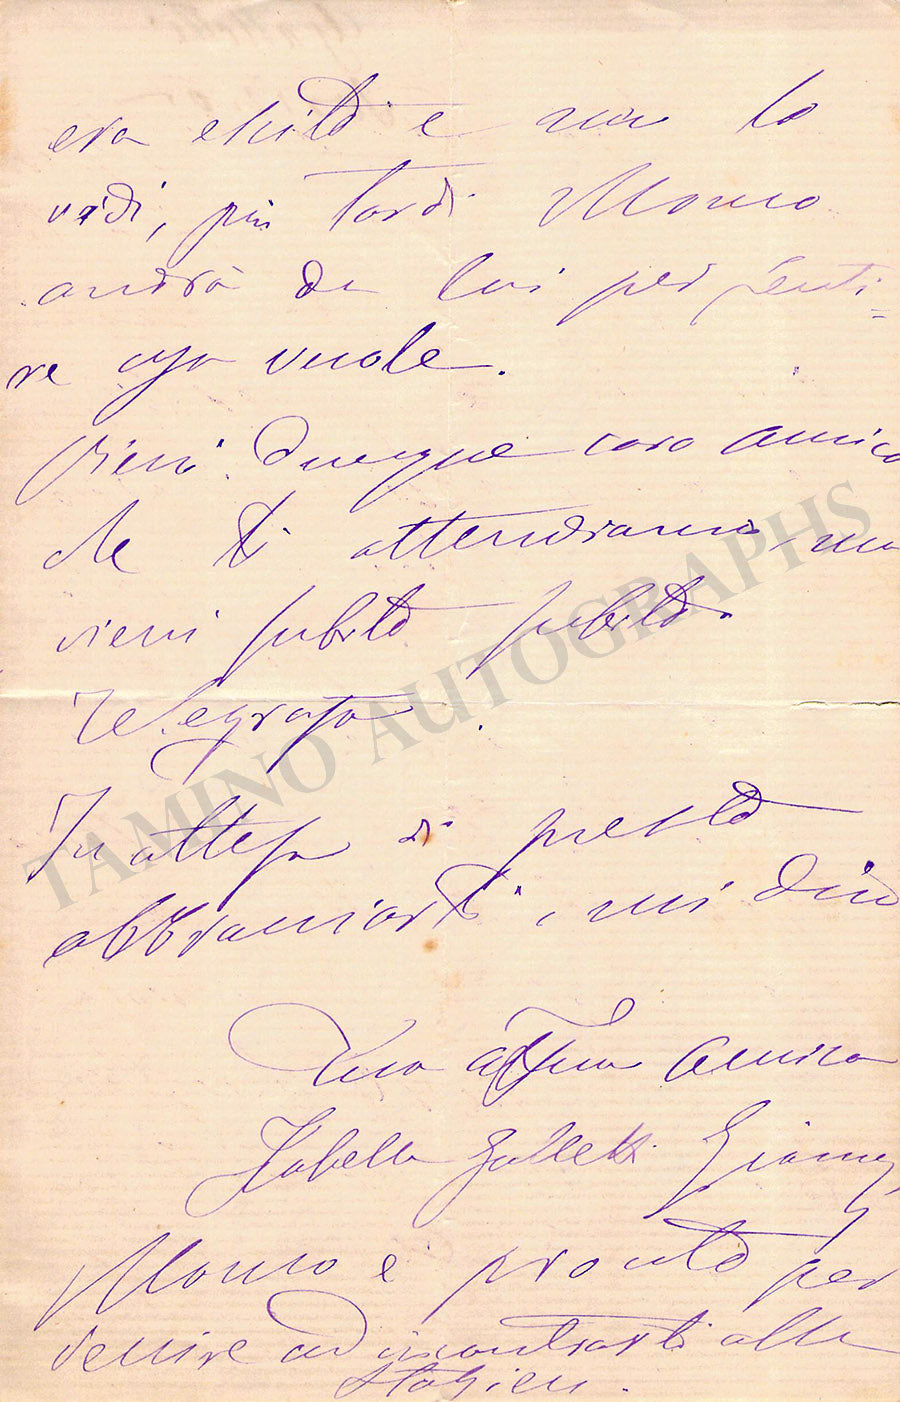 era escito e non lo
vidi, più tardi Momo
andrà da lui per senti=
re cosa vuole.
Vieni dunque cara amica
che ti attendiamo, ma
vieni subito subito.
Telegrafa.
In attesa di presto
abbracciarti, mi dico
Tua affma Amica
Isabella Galletti Gianoli
Momo è pronto per
venire ad incontrarti alla
Stazione.
TAMINO AUTOGRAPHS